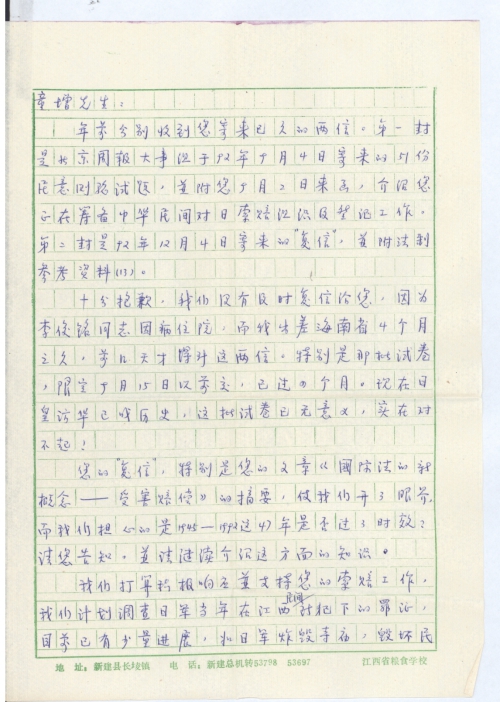 童增先生：
年前分别收到您寄来已久的两信。第一封
是北京周报大事记于92年9月4日寄来的51份
民意测验试题，并附您9月2日来函，介绍您
正在筹备中华民间对日索赔组织及登记工作。
第二封是92年12月4日寄来的"复信"，并附法制
参考资料(13)。
十分抱歉，我们没有及时复信给您，因为
李俊铭同志因病住院，而我出差海南省4个月
之久，前几天才得读这两信。特别是那批试卷
，限定9月15日以前交，已过四个月。现在日
皇访华已成历史，这批试卷已无意义，实在对
不起！
您的"复信"，特别是您的文章《国际法的新
概念——受害赔偿》的摘要，使我们开了眼界，
而我们担心的是1945—1992这47年是否过了时效？
请您告知。并请继续介绍这方面的知识。
我们打算积极响应并支持您的索赔工作，
我们计划调查日军当年在江西所犯下的罪证，
目前已有少量进展，如日军炸毁寺庙，毁坏民
地 址：新建县长堎镇 电 话：新建总机转53798 53697 江西省粮食学校